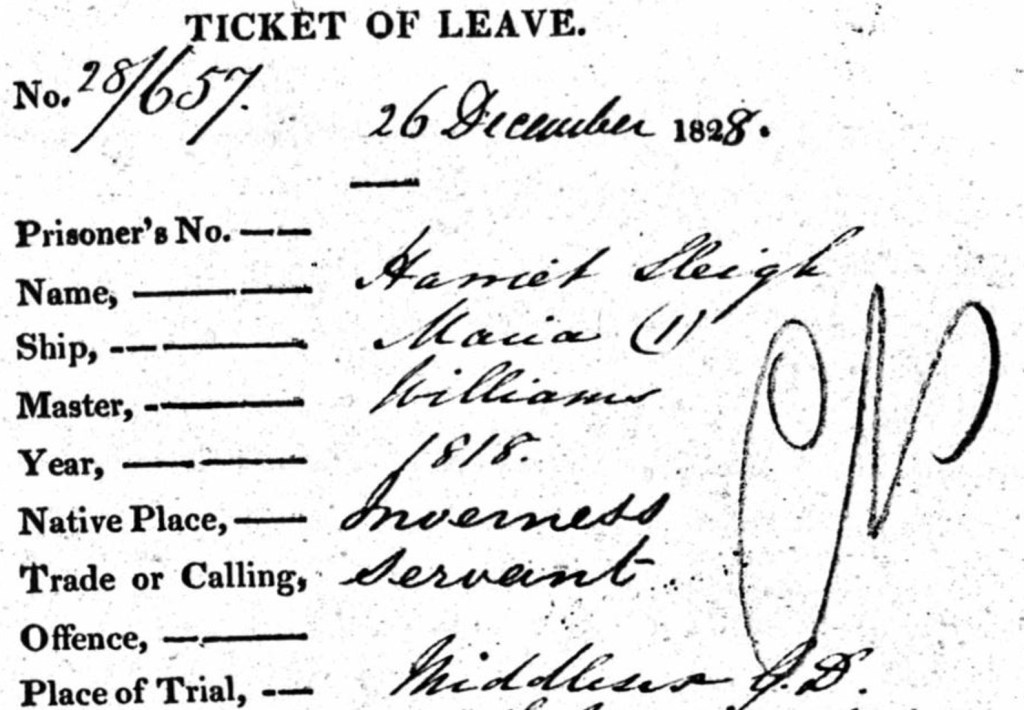 TICKET OF LEAVE.
No. 28/657.
26 December 1828.
Prisoner's No.
Name, Harriet Sleigh
Ship, Maria (1)
Master, Williams
Year, 1818.
Native Place, Inverness
Trade or Calling, Servant
Offence,
Place of Trial, Middlesex G.D.